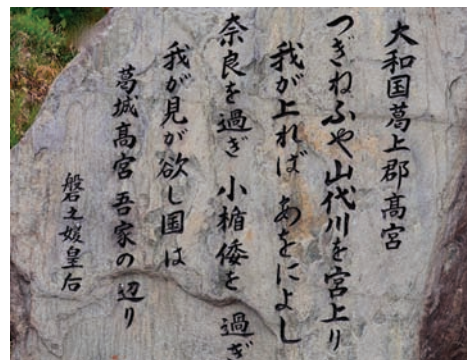 大和国葛上郡髙宮
つぎねふや山代川を宮上り
我が上れば あをによし
奈良を過ぎ 小楯倭を 過ぎ
我が見が欲し国は
葛城髙宮 吾家の辺り
磐之媛皇后